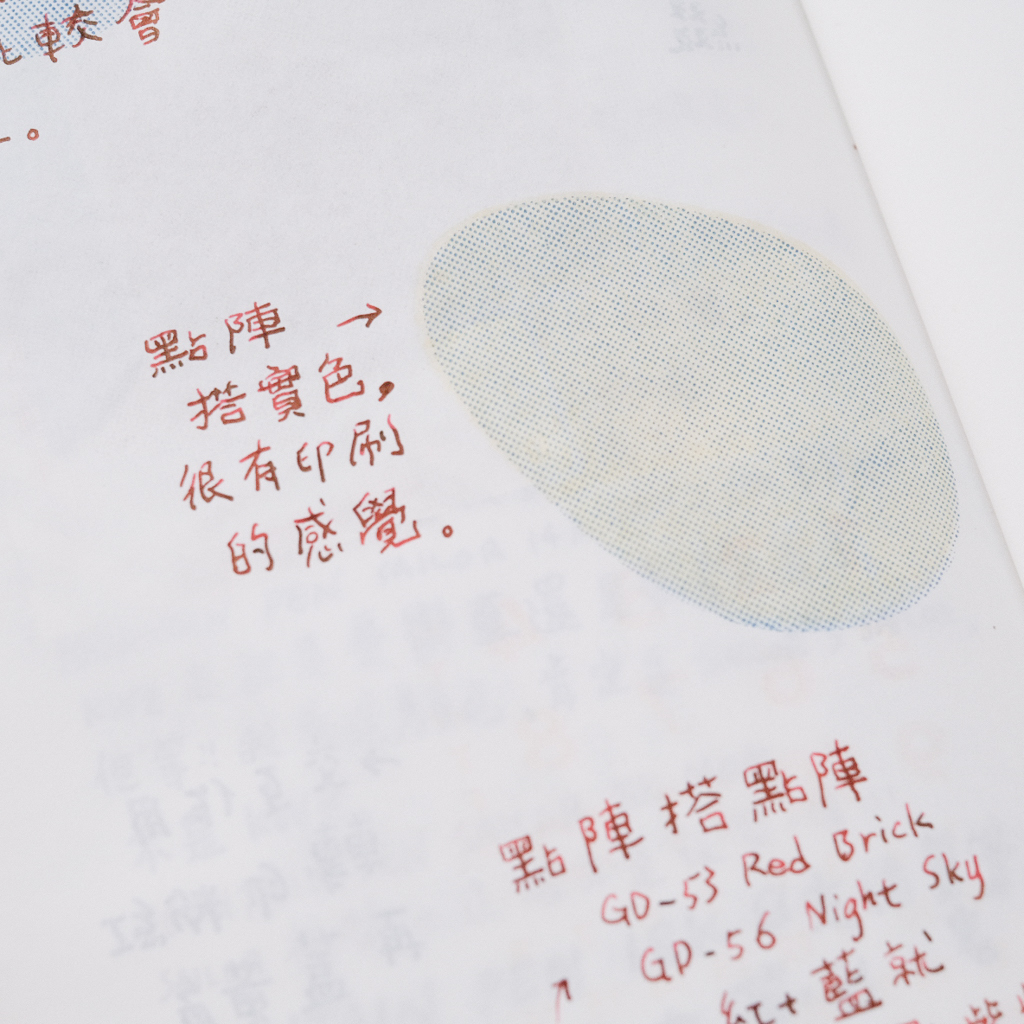 較會
。
點陣 →
搭實色,
很有印刷
的感覺。
點陣搭點陣
GD-53 Red Brick
GD-56 Night Sky
紅+藍就